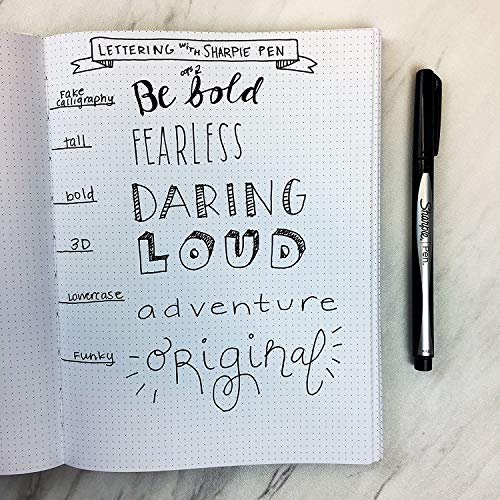 LETTERING with SHARPIE PEN
Fake calligraphy
Be bold
tall
FEARLESS
bold
DARING
3D
LOUD
lowercase
adventure
Funky
ORiginal
Sharpie Pen